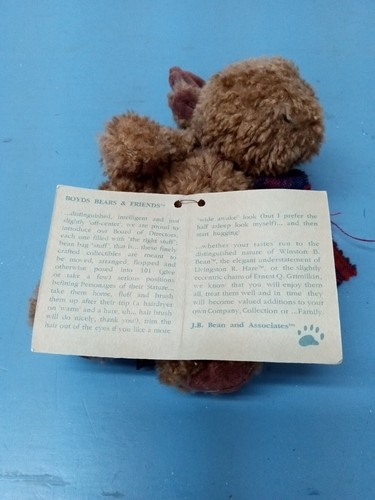 BOYDS BEARS & FRIENDS™
...distinguished, intelligent and just
slightly 'off-center', we are proud to
introduce our Board of Directors,
each one filled with "the right stuff";
bean bag "stuff", that is... these finely
crafted collectibles are meant to
be moved, arranged, flopped and
otherwise posed into 181 (give
or take a few) serious positions
befitting Personages of their stature...
take them home, fluff and brush
them up after their trip (a hairdryer
on 'warm' and a baby, uh... hair brush
will do nicely, thank you!), trim the
hair out of the eyes if you like a more
"wide awake" look (but I prefer the
half asleep look myself)... and then
start hugging!
...whether your tastes run to the
distinguished nature of Winston B.
Bean™, the elegant understatement of
Livingston R. Hare™, or the slightly
eccentric charm of Ernest Q.
we know that you will enjoy them
all, treat them well and in time they
will become valued additions to your
own Company, Collection or ...Family.
J.B. Bean and Associates™